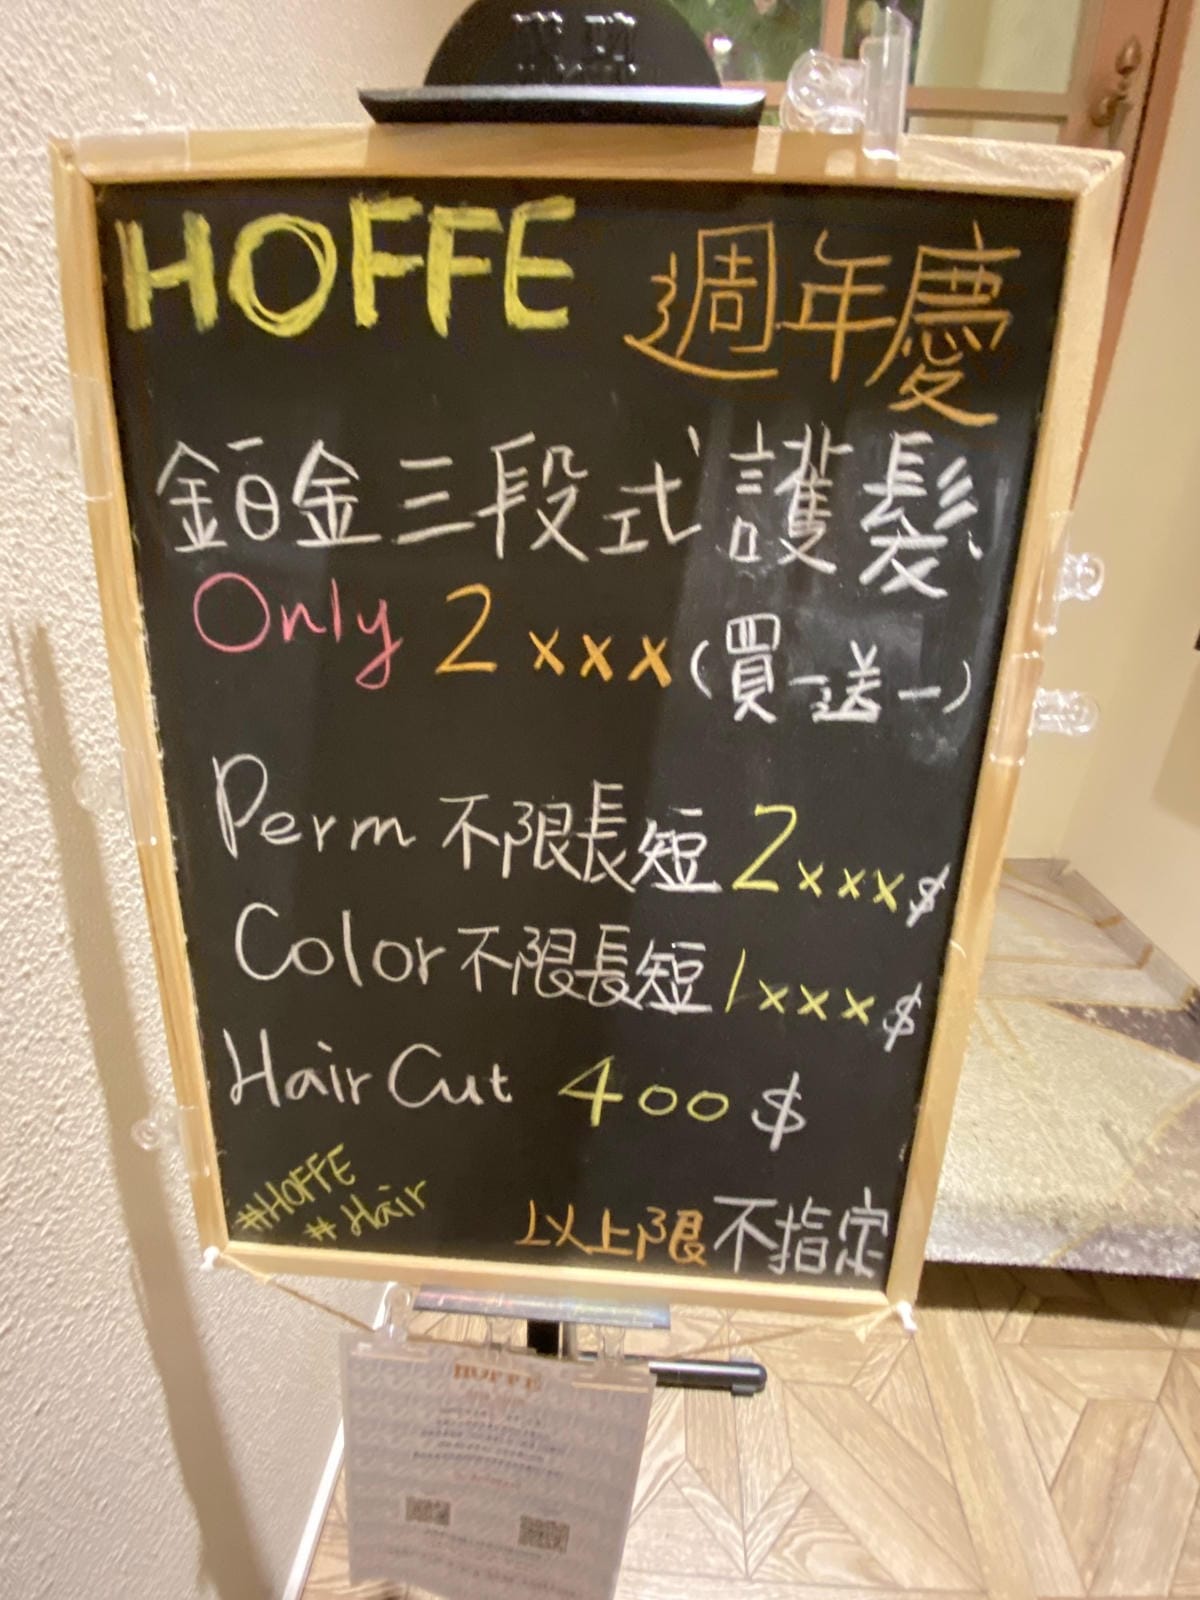 HOFFE 週年慶
鉑金三段式護髮
Only 2xxx(買一送一)
Perm 不限長短 2xxx$
Color 不限長短 1xxx$
Hair Cut 400$
#HOFFE
#Hair
以上限不指定